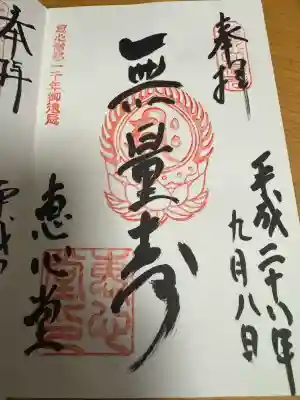 奉拝
平成二十八年
九月八日
無量寿
恵心僧都一千年御遠忌
恵心堂
恵心堂印
奉拝